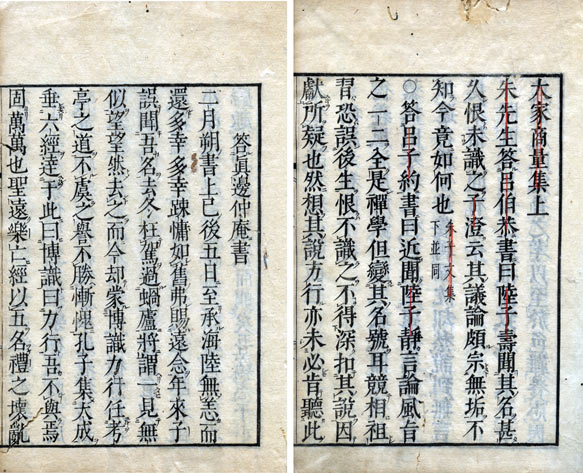 大家商量集上
朱先生答呂伯恭書曰陸子壽聞其名甚
久恨未識之子澄云其議論頗宗無垢不
知今竟如何也 朱子文集下並同
○答呂子約書曰近聞陸子靜言論風旨
之一二全是禪學但變其名號耳競相祖
習恐誤後生恨不識之不得深扣其說因
獻所疑也然想其說方行亦未必肯聽此
答眞邊仲庵書
二月朔書上巳後五日至承海陸無恙而
還多幸多幸踈慵如舊弗賜遠念年來子
誤聞吾名去冬枉駕過蝸廬將謂一見無
似望望然去之而今却蒙博識力行任考
亭之道不虞之譽不勝慚愧孔子集大成
垂六經達于此曰博識曰力行吾不與焉
固萬萬也聖遠樂亡經以五名禮之壞亂